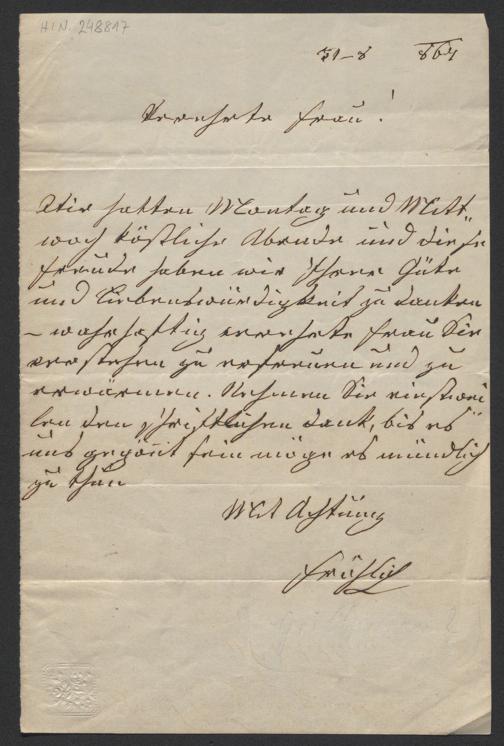 H.I.N. 248817
31-8 867
Verehrte Frau!
Wir hatten Montag und Mitt„
woch köstliche Abende und diese
Freude haben wir Ihrer Güte
und Liebenswürdigkeit zu danken
– wahrhaftig verehrte Frau Sie
verstehen zu erfreuen und zu
erwärmen. Nehmen Sie einstwei„
len den schriftlichen Dank, bis es
uns gegönnt sein möge es mündlich
zu thun
Mit Achtung
Fröhlich